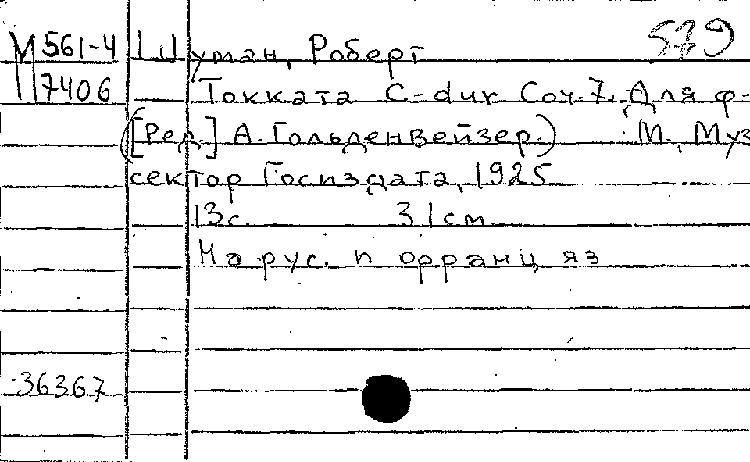 М 561-4 Шуман, Роберт 579
7406 Токката C-dur Соч. 7. Для ф-
([Ред.] А. Гольденвейзер.) М., Муз
сектор Госиздата, 1925
13 с. 31 см
На рус. и франц яз
36367